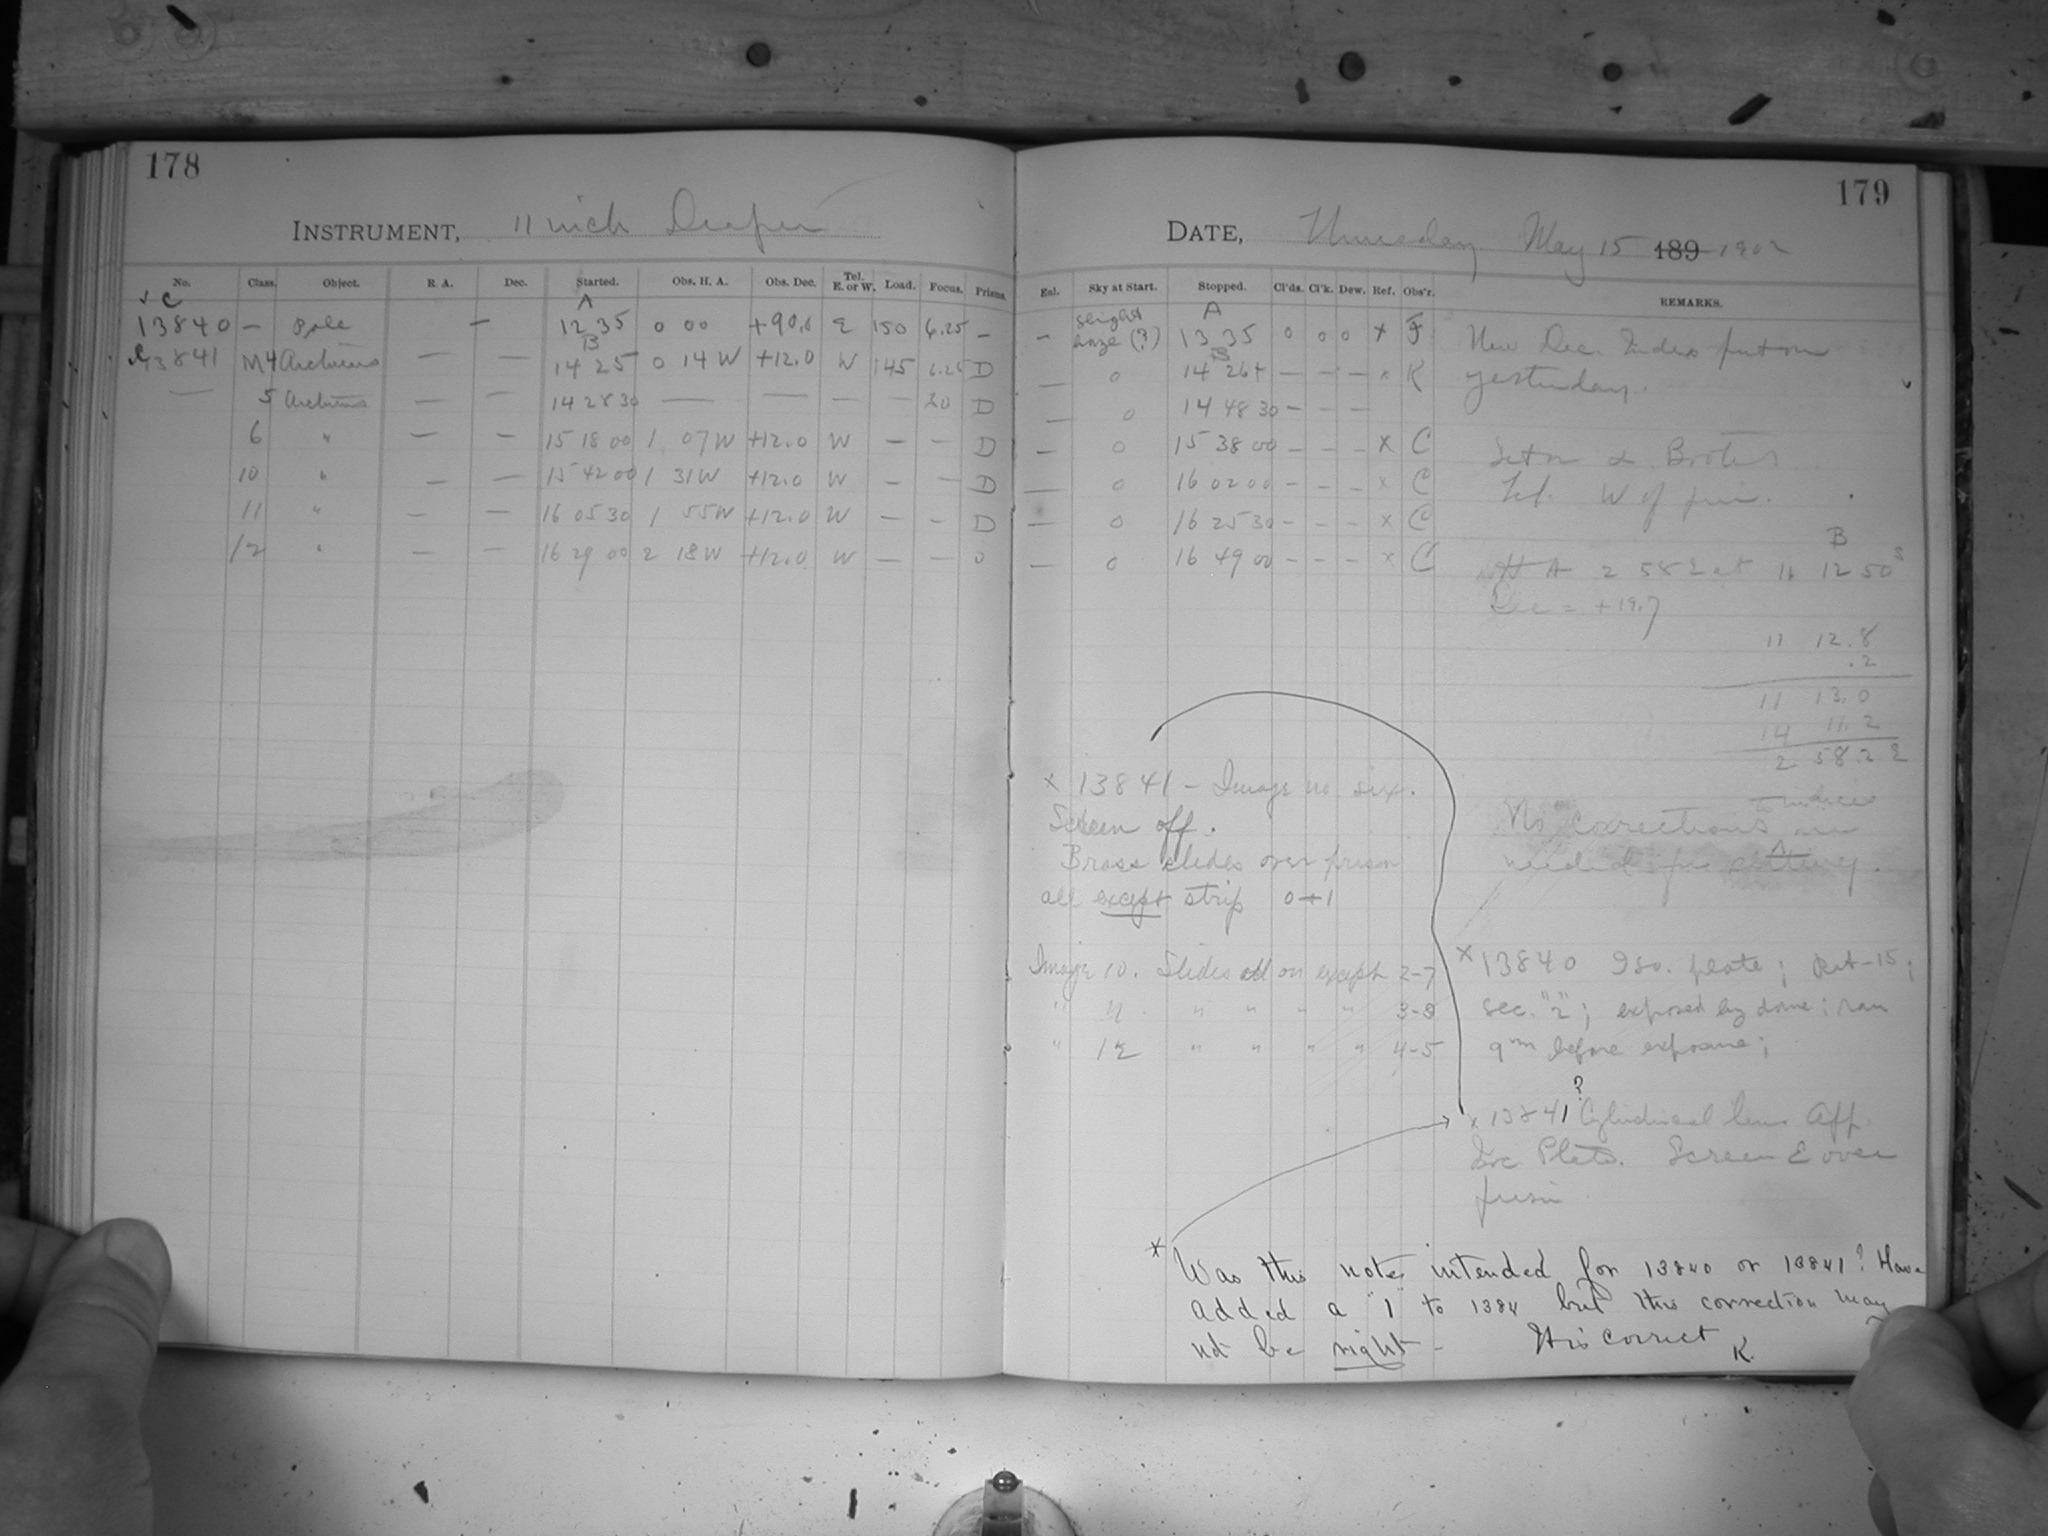 178
INSTRUMENT, 11 inch Draper
No. Class. Object. R. A. Dec. Started. Obs. H. A. Obs. Dec. Tel. E. or W. Load. Focus. Prisms.
√ C A
13840 — Pole — 12 35 0 00 +90.0 E 150 6.25 —
B
13841 M4 Arcturus — — 14 25 0 14 W +12.0 W 145 6.25 D
— 5 Arcturus — — 14 28 30 — — — — 20 D
6 " — — 15 18 00 1 07 W +12.0 W — — D
10 " — — 15 42 00 1 31 W +12.0 W — — D
11 " — — 16 05 30 1 55 W +12.0 W — — D
12 " — — 16 29 00 2 18 W +12.0 W — — D
179
DATE, Thursday May 15 189 1902
Exl. Sky at Start. Stopped. Cl'ds. Cl'k. Dew. Ref. Obs'r. REMARKS.
A
— slight haze (?) 13 35 0 0 0 x F
B
— 0 14 26+ — — — x K
— 0 14 48 30 — — —
— 0 15 38 00 — — — x C
— 0 16 02 00 — — — x C
— 0 16 25 30 — — — x C
— 0 16 49 00 — — — x C
New Dec. Index put on
yesterday.
Set on α Bootis
Tel. W of pier.
B
H A 2 58 E at 11 12 50 s
Dec = +19.7
11 12.8
.2
11 13.0
14 11.2
2 58.2 E
No corrections to indices are
needed for setting.
x 13841 – Image no. six.
Screen off.
Brass slides over prism
all except strip 0+1
Image 10. Slides all on except 2-7
" 11 " " " " 3-8
" 12 " " " " 4-5
x 13840 Iso. plate; Rat-15;
sec. "2"; exposed by dome; ran
9m before exposure;
?
x 13841 Cylindrical lens App.
Iso. Plate. Screen E over
prism
* Was this note intended for 13840 or 13841? Have
added a "1" to 1384 but this correction may
not be right – It is correct K.